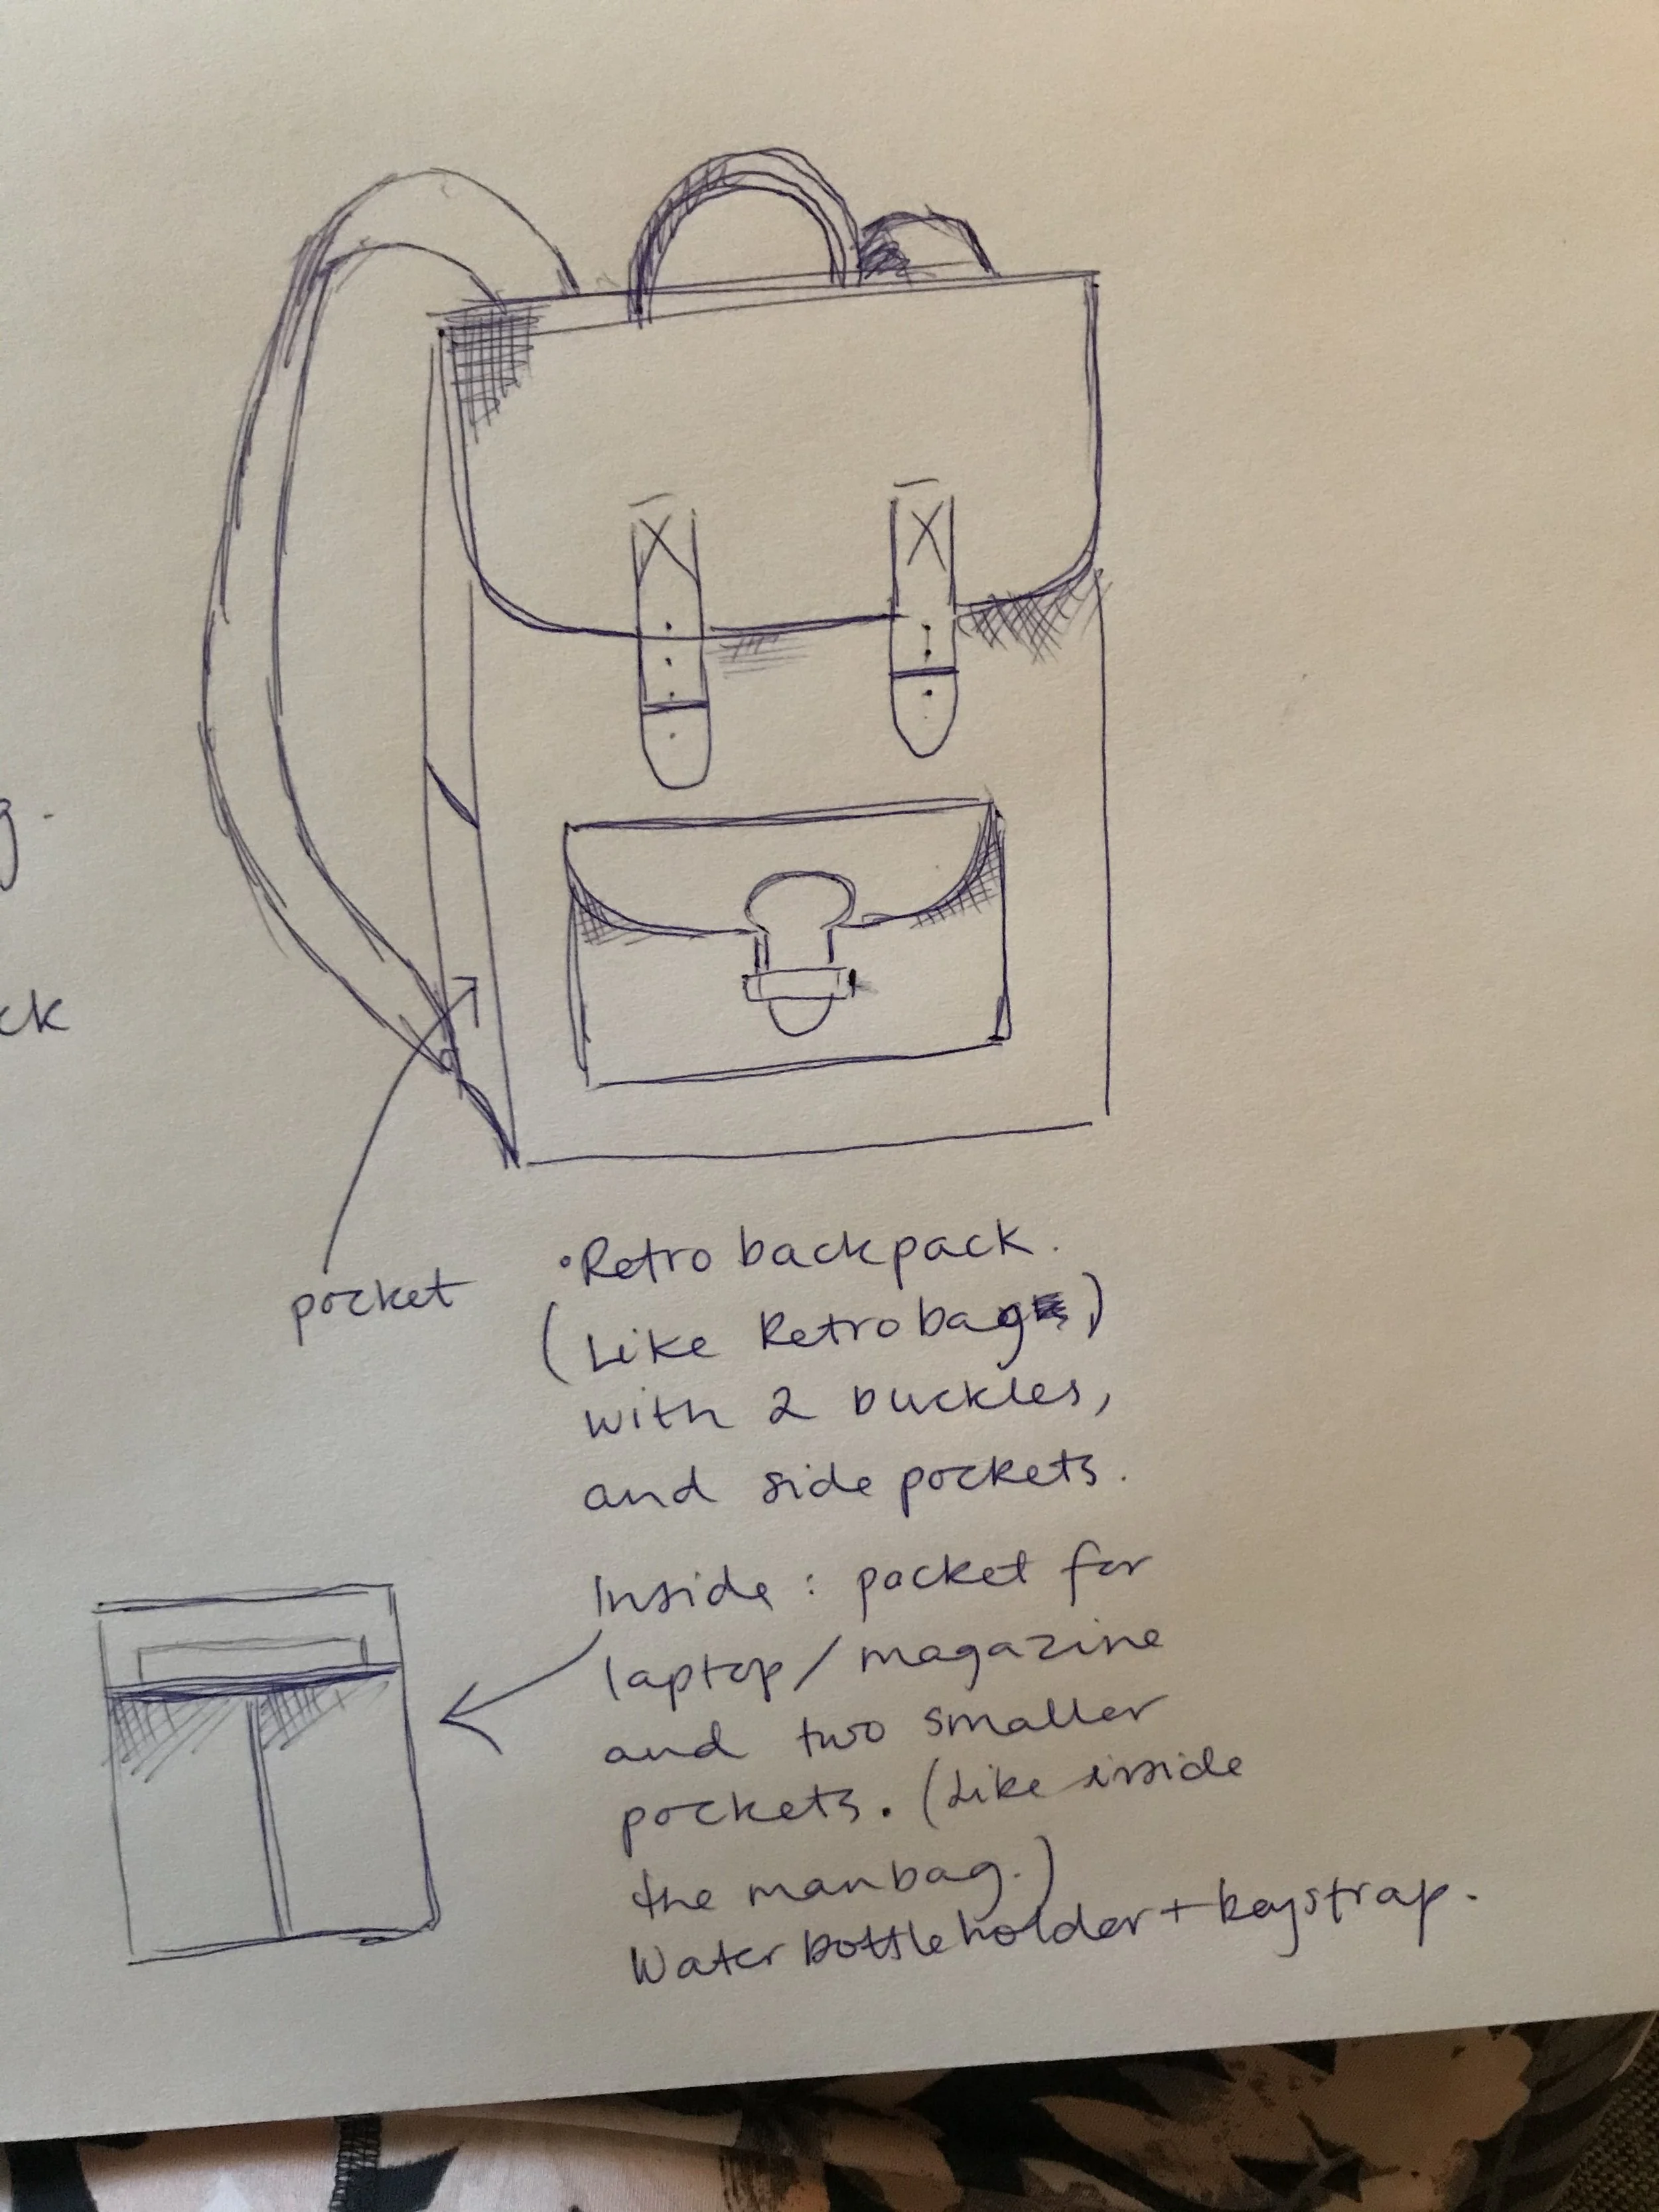 g.
ck
pocket
•Retro backpack.
(Like Retrobag)
with 2 buckles,
and side pockets.
Inside: pocket for
laptop/magazine
and two smaller
pockets. (Like inside
the manbag.)
Water bottleholder + keystrap.